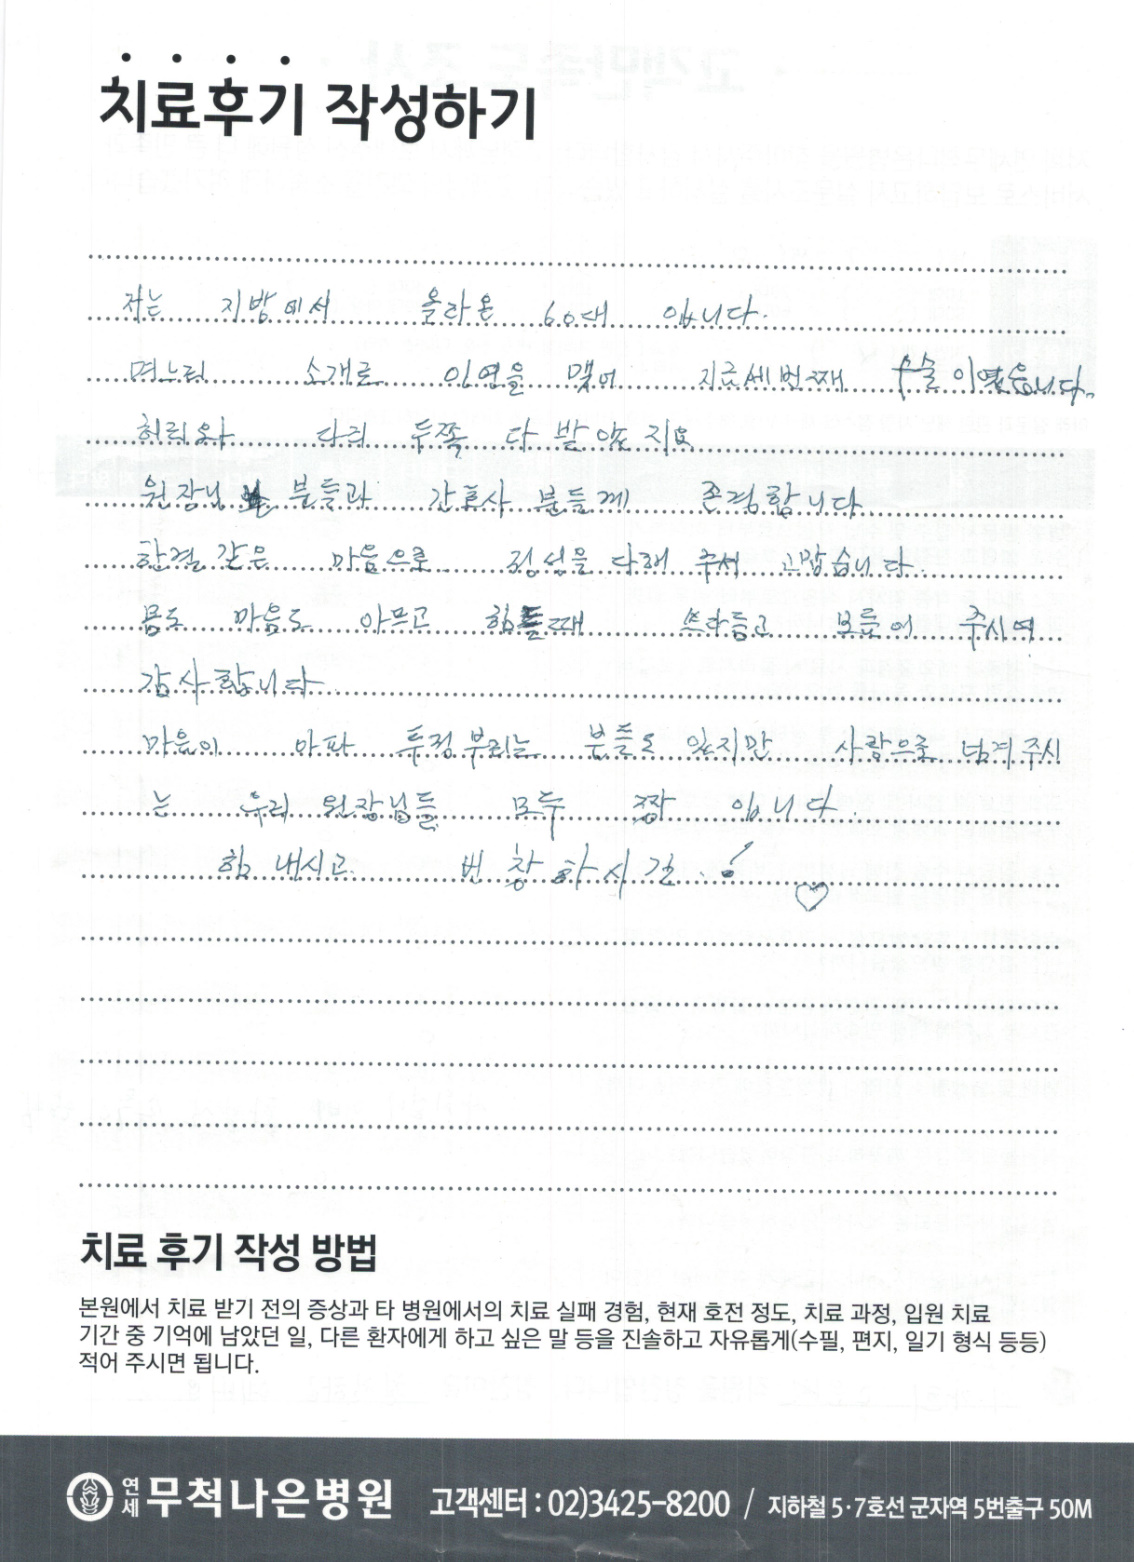 치료후기 작성하기
저는 지방에서 올라온 60대 입니다.
며느리 소개로 인연을 맺어 지금 세번째 수술이였습니다.
허리와 다리 두쪽 다 받았지요
원장님 분들과 간호사 분들께 존경합니다
한결 같은 마음으로 정성을 다해 주셔 고맙습니다.
몸도 마음도 아프고 힘들때 쓰다듬고 보듬어 주시여
감사합니다
마음이 아파 투정부리는 분들도 있지만 사랑으로 넘겨주시
는 우리 원장님들 모두 짱 입니다.
힘 내시고 번창하시길.! ♡
치료 후기 작성 방법
본원에서 치료 받기 전의 증상과 타 병원에서의 치료 실패 경험, 현재 호전 정도, 치료 과정, 입원 치료
기간 중 기억에 남았던 일, 다른 환자에게 하고 싶은 말 등을 진솔하고 자유롭게(수필, 편지, 일기 형식 등등)
적어 주시면 됩니다.
연세 무척나은병원 고객센터 : 02)3425-8200 / 지하철 5·7호선 군자역 5번출구 50M